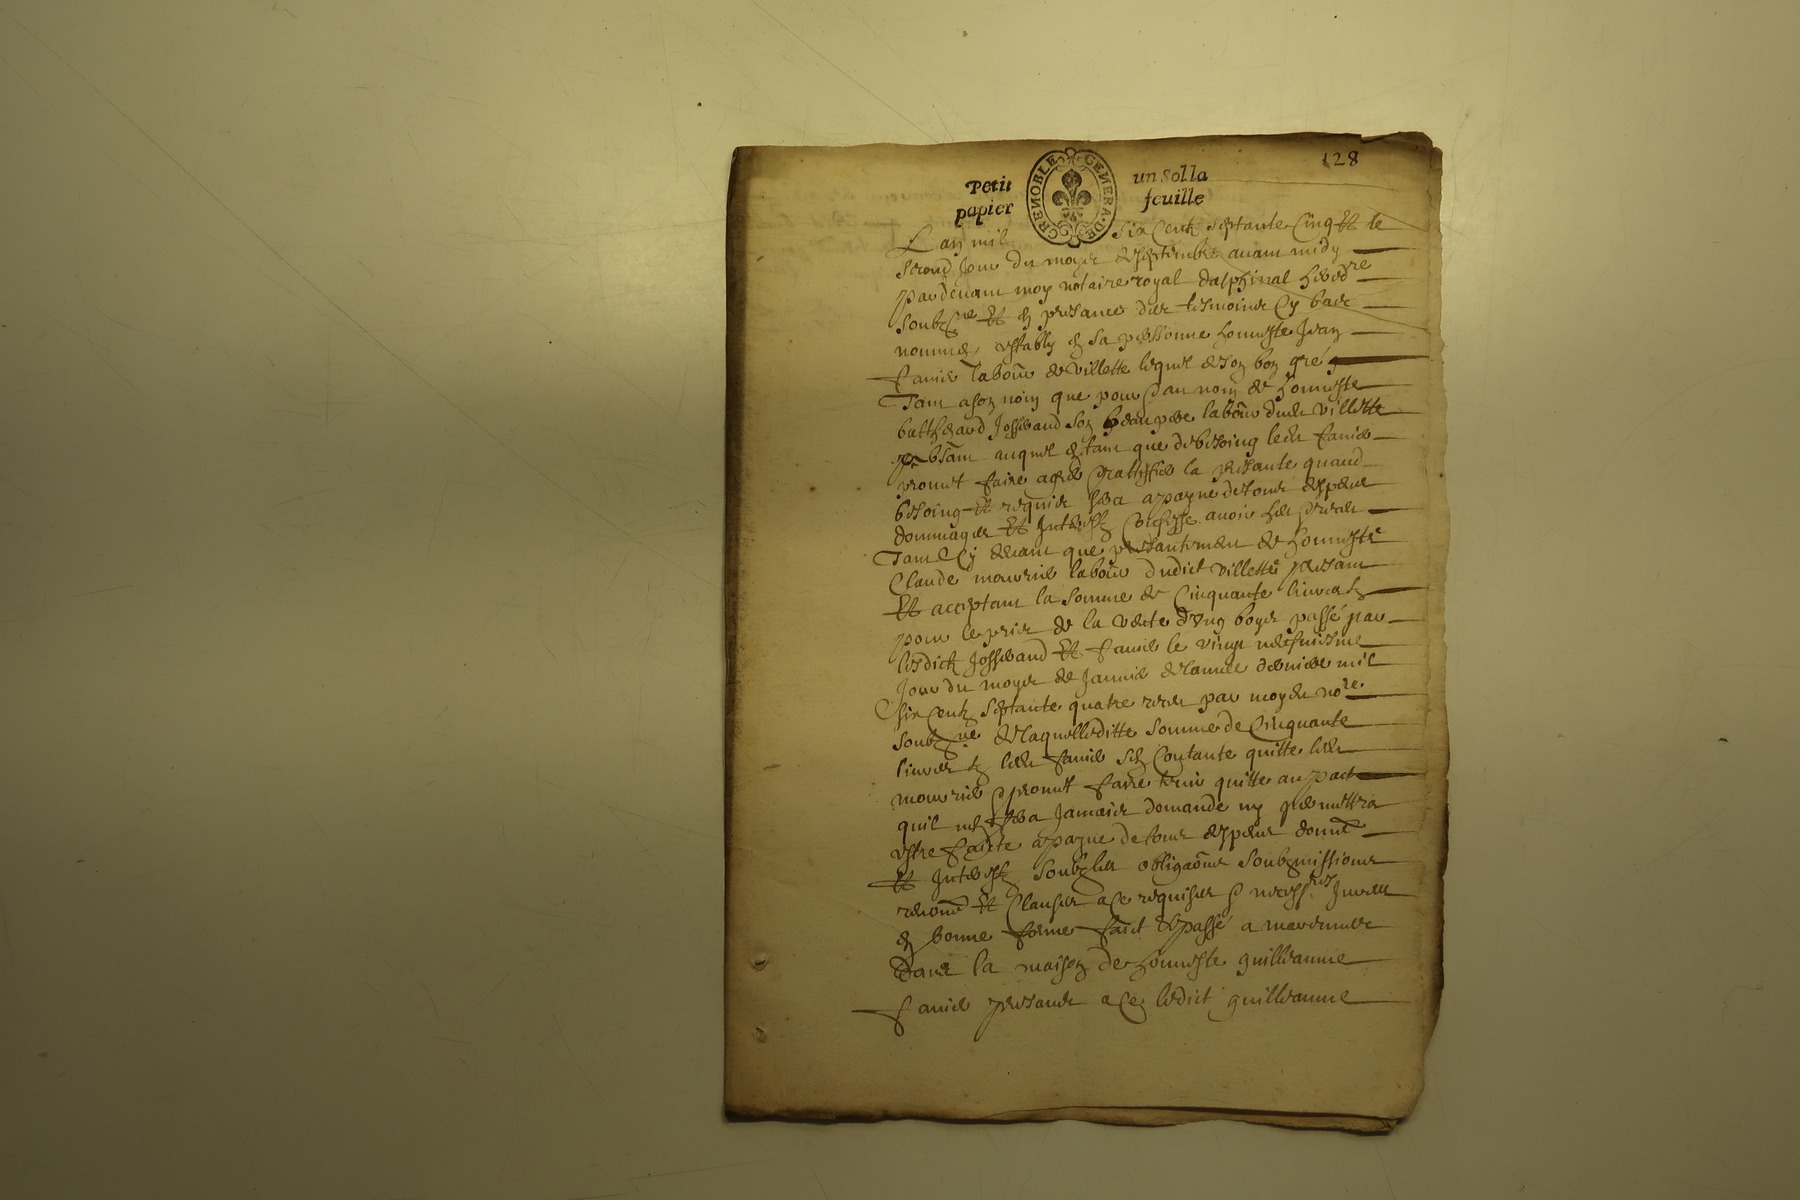 128
Petit un sol la
papier feuille
GRENOBLE GENERA. DE
L an mil six Centz septante Cinq Et le
second Jour du moys de septembre auant midy
pardeuant moy notaire royal dalphinal hered^re
soubz^ne Et en presance des tesmoins Cy bas
nommes, estably en sa personne honneste Jean
labou^r de Villette lequel de son bon gré
Tant a son nom que pour & au nom de honneste
Josserand son beau pere labou^r dudit Villette
absant auquel & tant que de besoing led
promet faire agreer & rattiffier la presante quand
besoing Et requis sera a payne de tous despens
dommages Et Interestz Confesse auoir heu & receu
Tant Cy deuant que presantement de honneste
Claude labou^r dudict Villette presant
Et acceptant la somme de Cinquante liures tz
pour le prix de la vente d'Ung boeuf passé par
lesdictz Josserand Et le vingt neufuiesme
Jour du moys de Januier de lannee derniere mil
six Centz septante quatre receu par moydit no^re
soubz^ne de laquelle ditte somme de Cinquante
liures tz led sen Contante quitte led
& promet faire tenir quitte au pact
quil nen sera Jamais demande ny permettra
estre faicte a payne de tous despens domm^es
Et Interestz soubz les obliga^ons soubzmissions
renon^s Et Clauses a ce requises & necess^res Jurees
en bonne forme faict & passé a
Dans la maison de honneste guilleaume
presantz a Ce ledict guilleaume